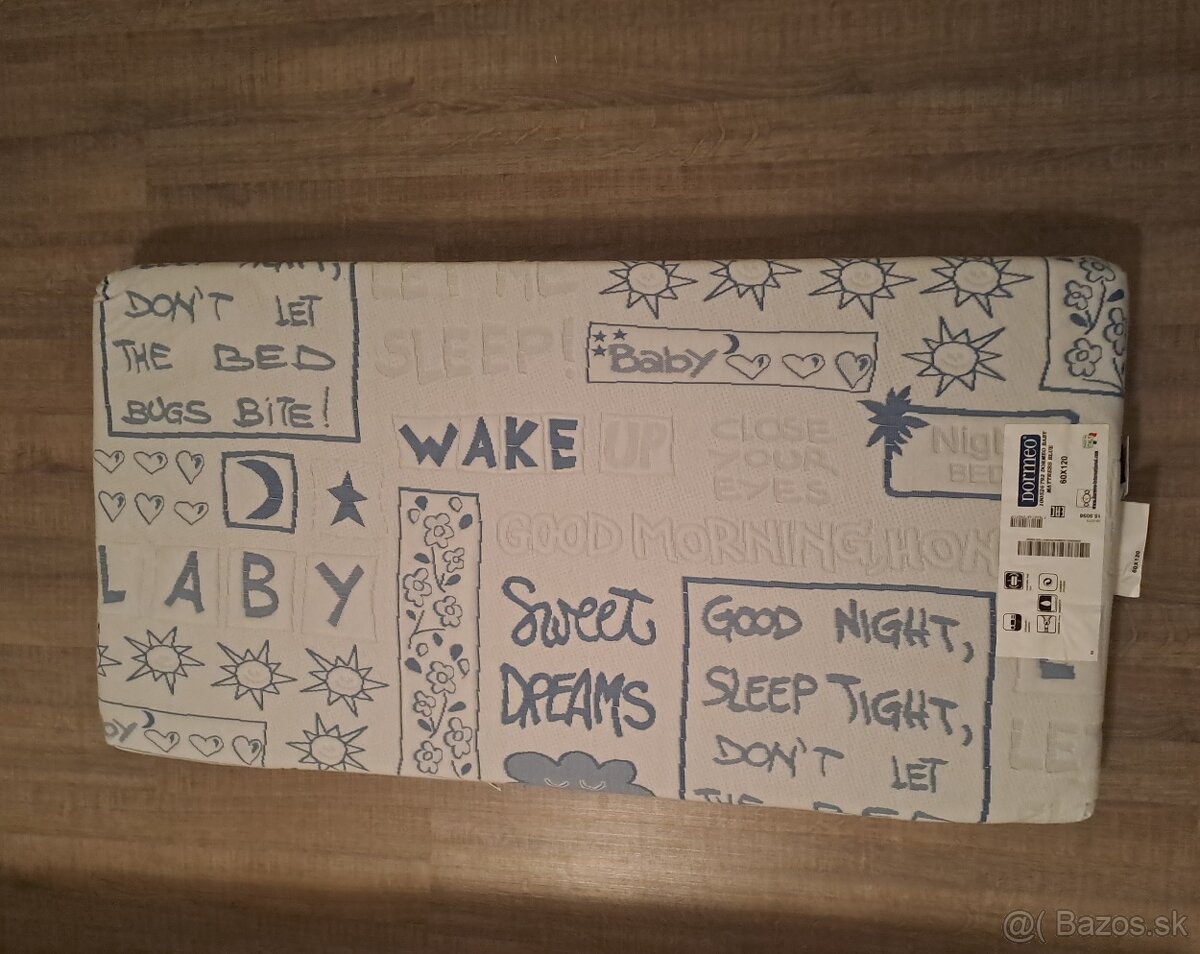 NIGHT,
DON'T LET
THE BED
BUGS BITE!
LET ME
SLEEP!
Baby
WAKE UP
CLOSE
YOUR
EYES
Nigh
BED
LABY
GOOD MORNING, HON
Sweet
DREAMS
GOOD NIGHT,
SLEEP TIGHT,
DON'T LET
THE BED
by
LE
DORMEO
60X120
60X120
@( Bazos.sk